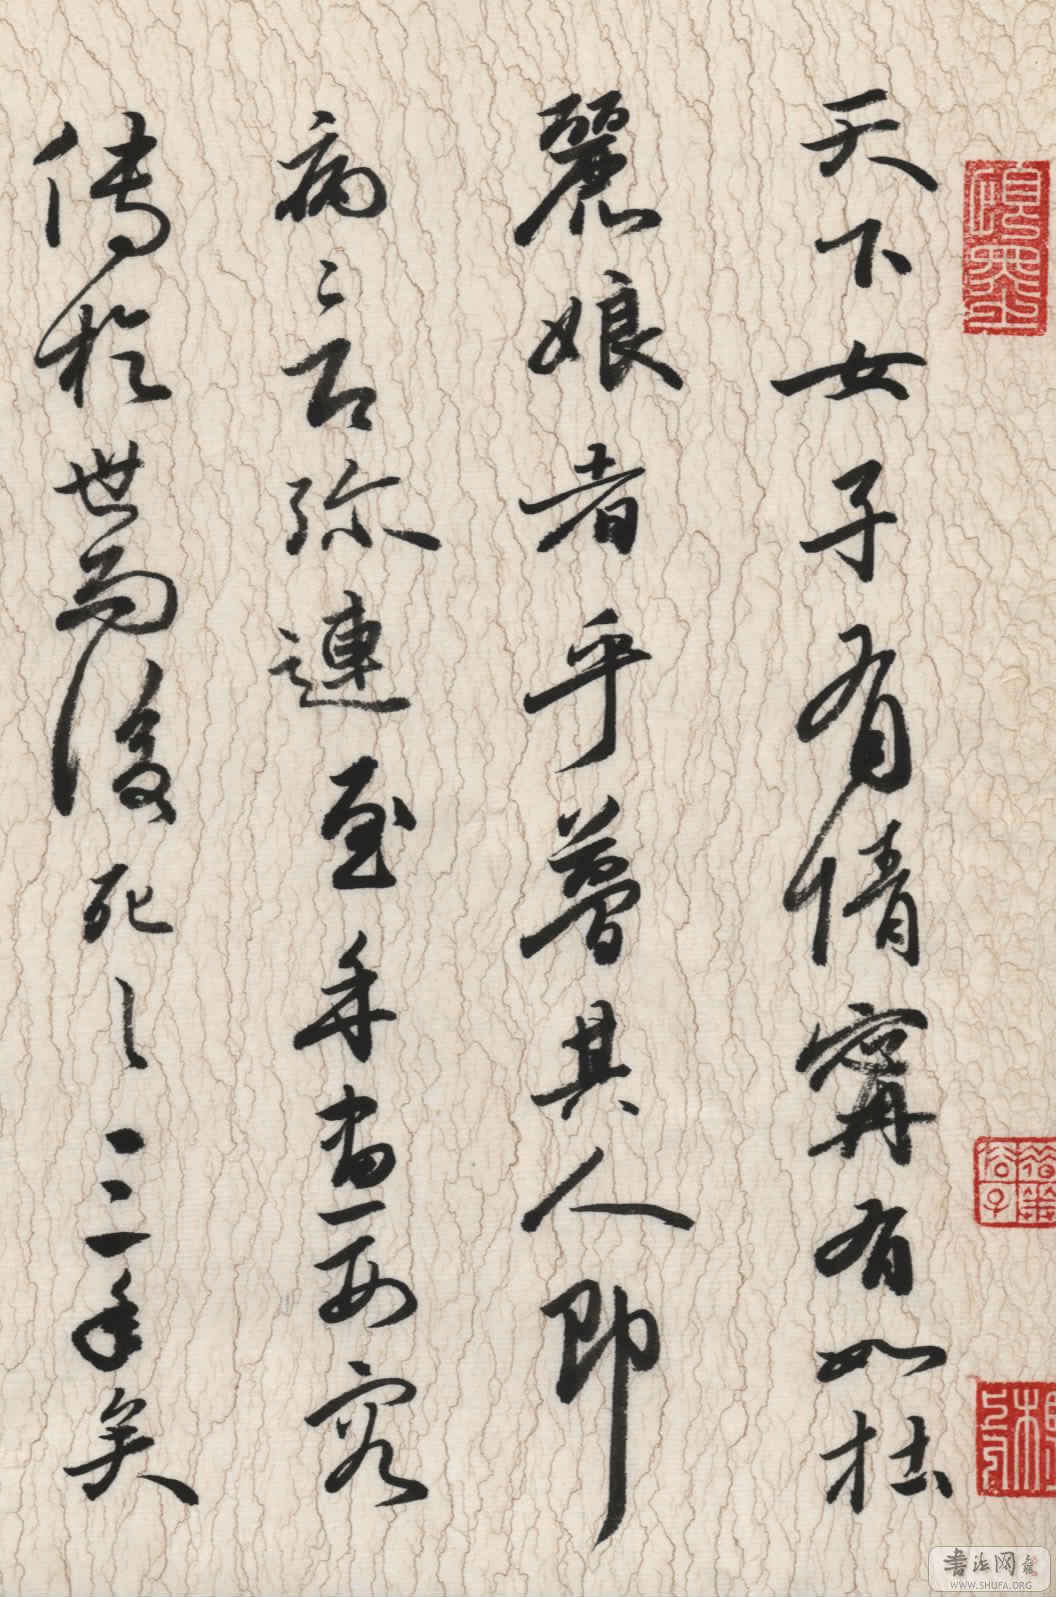 天下女子有情寧有如杜
麗娘者乎夢其人即
病〻即弥連至手畫形容
傳於世而後死〻三年矣
書法网
WWW.SHUFA.ORG